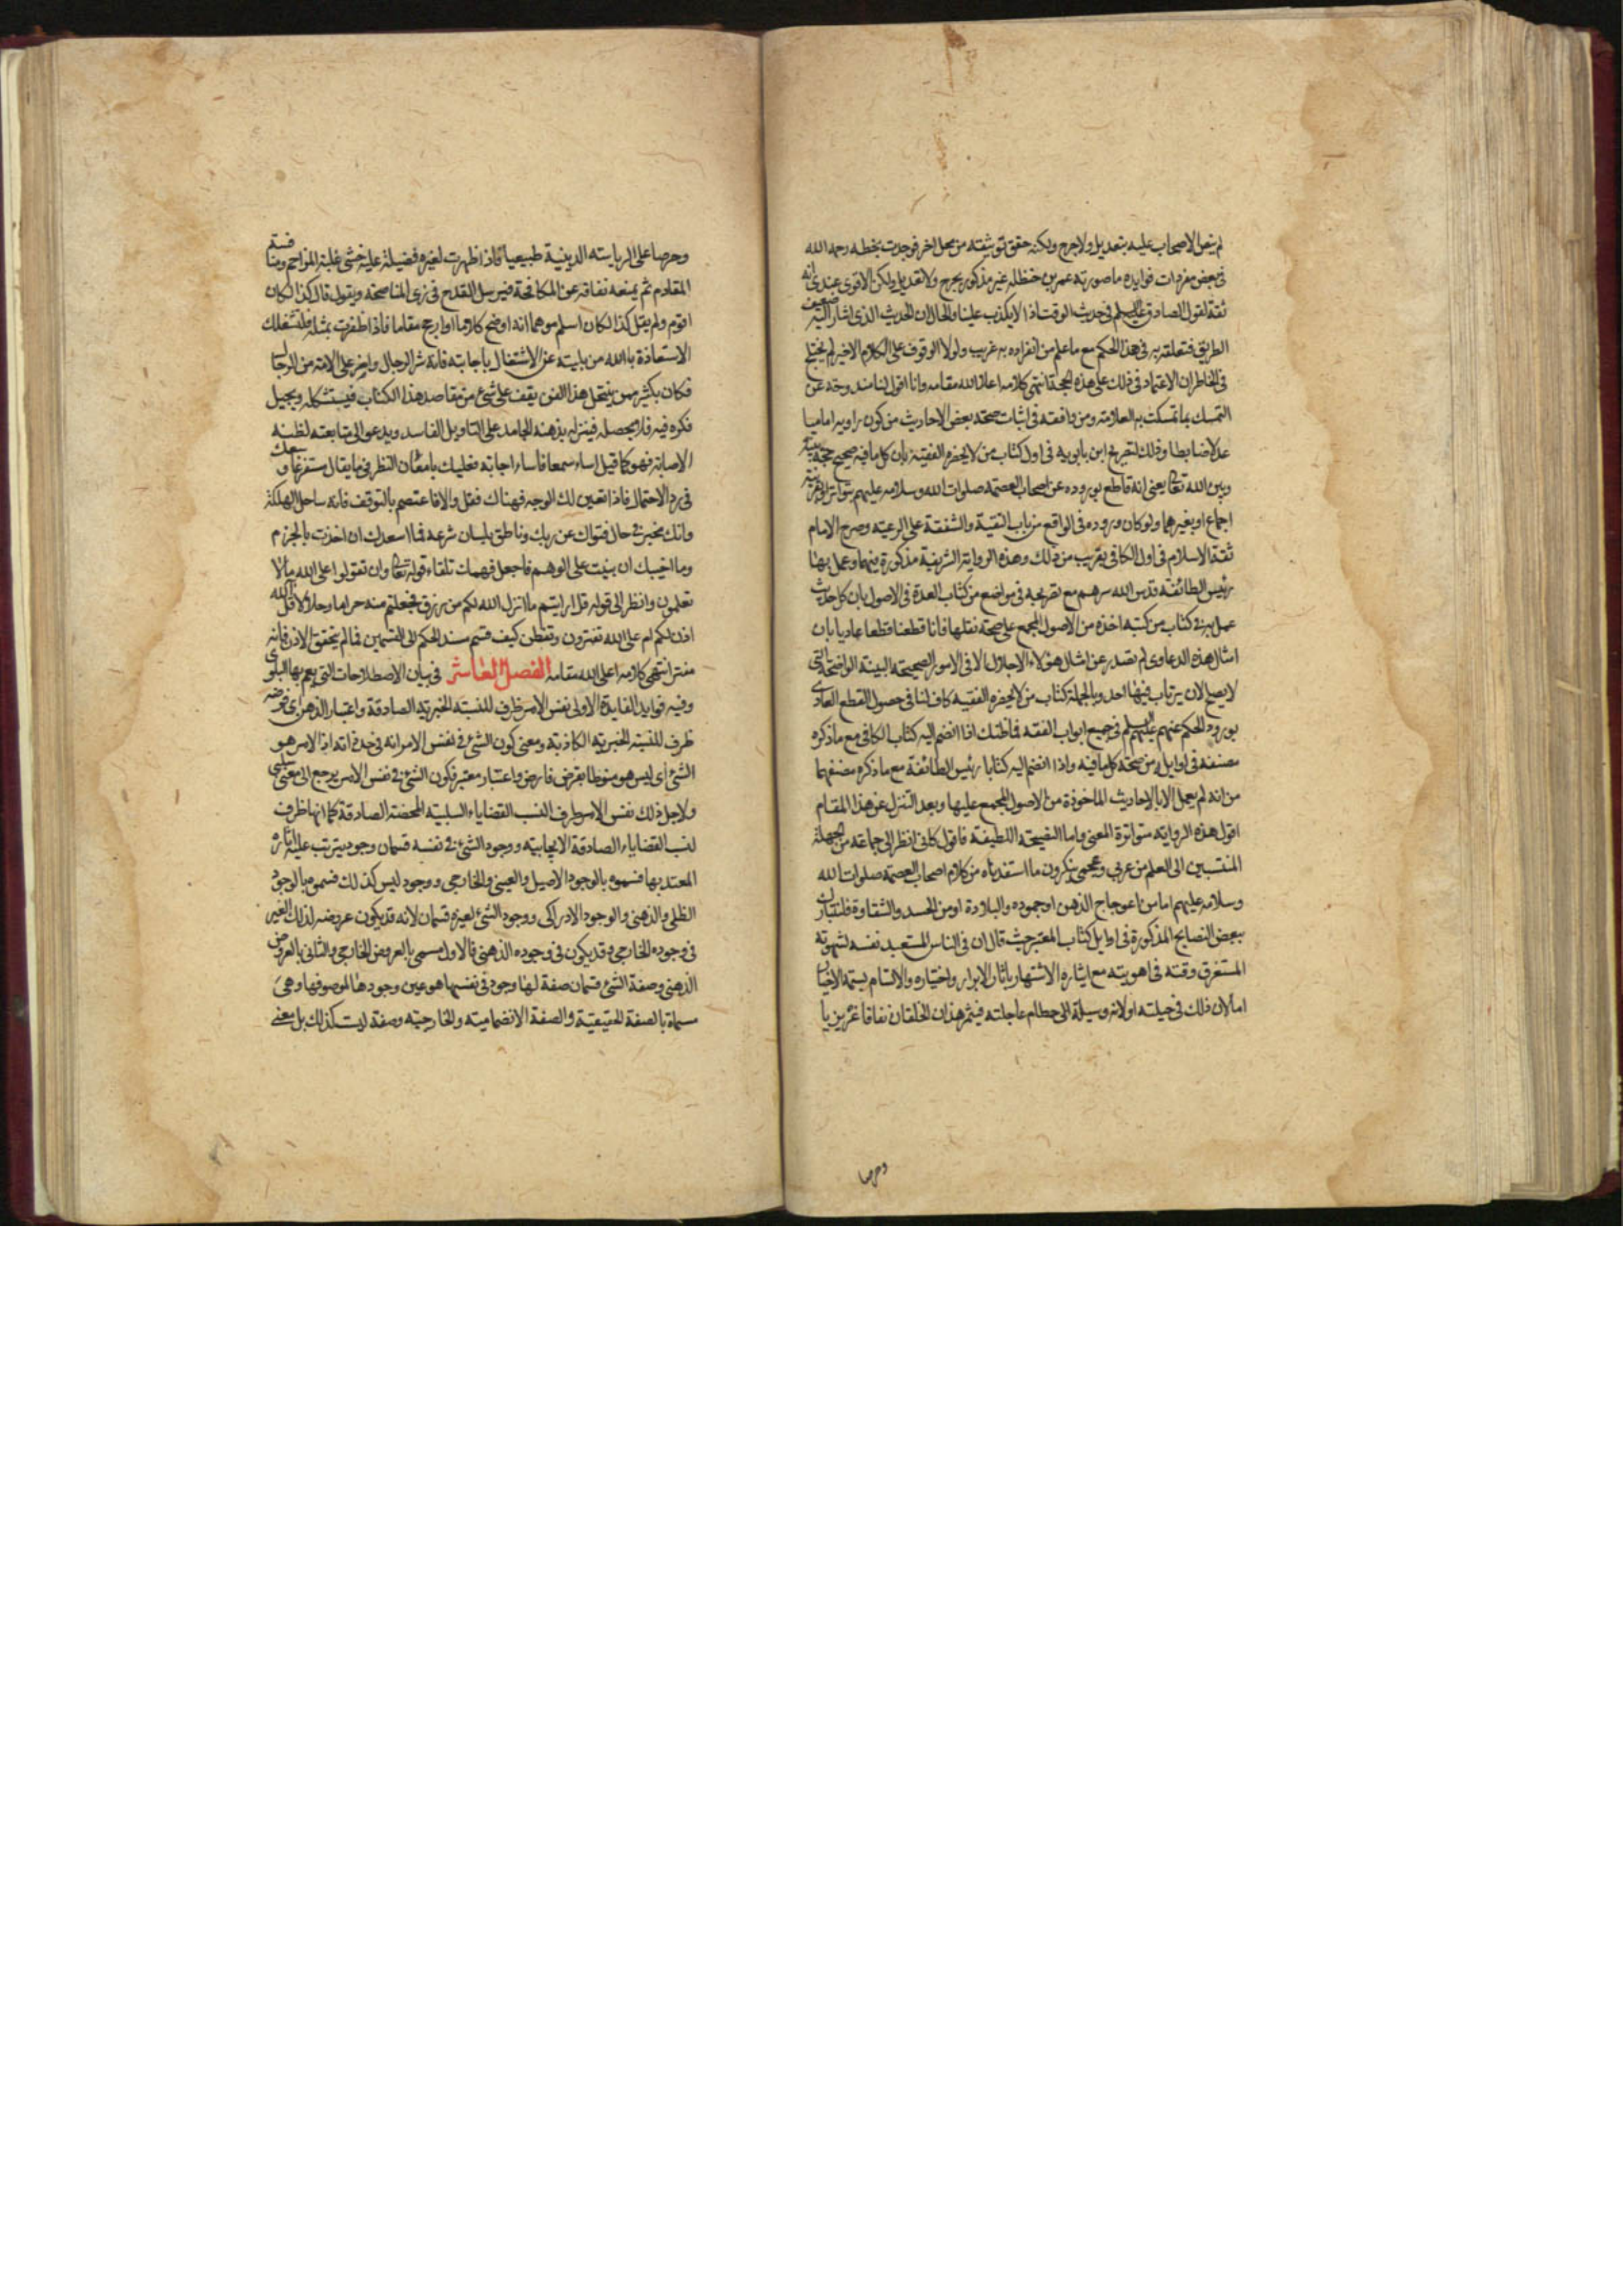 لم ينص الاصحاب عليه بتعديل ولا جرح ولكنه حقق توثيقه من محل اخر فوجدت بخطه رحمه الله
في بعض مفردات فوايده ما صورته عمر بن حنظله غير مذكور بجرح ولا تعديل ولكن الاقوى عندي انه
ثقة لقول الصادق عليه السلم في حديث الوقت اذا لا يكذب علينا والحال ان الحديث الذي اشار اليه ضعيف
الطريق فتعلقه به في هذا الحكم مع ما علم من انفراده به غريب ولولا الوقوف على الكلام الاخير لم يختلج
في الخاطر ان الاعتماد في ذلك على هذه الحجة انتهى كلامه اعلا الله مقامه وانا اقول لنا مندوحة عن
التمسك بما تمسكت به العلامة ومن وافقه في اثبات صحة بعض الاحاديث من كون راويه اماميا
عدلا ضابطا وذلك لتصريح ابن بابويه في اول كتاب من لا يحضره الفقيه بان كل ما فيه صحيح حجة بينه
وبين الله تعالى يعني انه قاطع بوروده عن اصحاب العصمة صلوات الله وسلامه عليهم بتواتر او بقرينة
اجماع او بغيرهما ولو كان وروده في الواقع من باب التقية والشفقة على الرعية وصرح الامام
ثقة الاسلام في اول الكافي بقريب من ذلك وهذه الرواية الشريفة مذكورة فيهما وعمل بها
رئيس الطائفة قدس الله سرهم مع تصريحه في مواضع من كتاب العدة في الاصول بان كل حديث
عمل به في كتاب من كتبه اخذه من الاصول المجمع على صحة نقلها فانا قطعنا قطعا عاديا بان
امثال هذه الدعاوى لم تصدر عن امثال هؤلاء الاجلاء الا في الامور الصحيحة البينة الواضحة التي
لا يصح لان يرتاب فيها احد وبالجملة كتاب من لا يحضره الفقيه كاف لنا في حصول القطع العادي
بورود الحكم عنهم عليهم السلم في جميع ابواب الفقه فما ظنك اذا انضم اليه كتاب الكافي مع ما ذكره
مصنفه في اوايله من صحة كل ما فيه واذا انضم اليه كتابا رئيس الطائفة مع ما ذكره مصنفهما
من انه لم يعمل الا بالاحاديث الماخوذة من الاصول المجمع عليها وبعد التنزل عن هذا المقام
اقول هذه الرواية متواترة المعنى واما النصيحة اللطيفة فاقول كاني انظر الى جماعة من الجهلة
المنتسبين الى العلم من عربي وعجمي ينكرون ما استفدناه من كلام اصحاب العصمة صلوات الله
وسلامه عليهم اما من اعوجاج الذهن او جموده والبلادة او من الحسد والشقاوة فلنتبارك
ببعض النصايح المذكورة في اوايل كتاب المعتبر حيث قال ان في الناس المستعبد نفسه لشهوته
المستغرق وقته في اهويته مع ايثاره الاشتهار باثار الابرار واختياره والاتسام بسمة الاخيار
اما لان ذلك في جبلته او لانه وسيلة الى حطام عاجلته فيثمر هذان الخلقان نفاقا غريزيا
وحرصا
وحرصا على الرياسة الدينية طبيعيا فاذا ظهرت لغيره فضيلة عليه خشى غلبة المزاحم ومنافسة
المقاوم ثم يمنعه نفاقه عن المكافحة فيرسل القدح في زي المناصحة ويقول قال كذا لكان
اقوم ولم يقل كذا لكان اسلم موهما انه اوضح كلاما وارجح مقاما فاذا ظفرت بمثله فلتشغلك
الاستعاذة بالله من بليته عن الاشتغال باجابته فانه شر الرجال واضر على الامة من الدجال
فكان بكثير ممن ينتحل هذا الفن يقف على شئ من مقاصد هذا الكتاب فيستشكله ويجيل
فكره فيه فلا يحصله فينزله بذهنه الجامد على التاويل الفاسد ويدعو الى متابعته لظنه
الاصابة فهو كما قيل اساء سمعا فاساء اجابة فعليك بامعان النظر فيما يقال مستفرغا وسعك
في رد الاحتمال فاذا تعين لك الوجه فهناك فقل والا فاعتصم بالتوقف فانه ساحل الهلكة
وانك مخبر في حال فتواك عن ربك وناطق بلسان شرعه فما اسعدك ان اخذت بالجزم
وما اخيبك ان بنيت على الوهم فاجعل فهمك تلقاء قوله تعالى وان تقولوا على الله ما لا
تعلمون وانظر الى قوله قل ارايتم ما انزل الله لكم من رزق فجعلتم منه حراما وحلالا قل الله
اذن لكم ام على الله تفترون وتفطن كيف قسم مستند الحكم الى القسمين فما لم يتحقق الاذن فانه
مفتر انتهى كلامه اعلى الله مقامه الفصل العاشر في بيان الاصطلاحات التي يعم بها البلوى
وفيه فوايد الفايدة الاولى نفس الامر ظرف للنسبة الخبرية الصادقة واعتبار الذهن اي فرضه
ظرف للنسبة الخبرية الكاذبة ومعنى كون الشئ في نفس الامر انه في حد ذاته اذ الامر هو
الشئ اي ليس هو منوطا بفرض فارض واعتبار معتبر فكون الشئ في نفس الامر يرجع الى معنى سلبي
ولاجل ذلك نفس الامر ظرف النسب القضاياء السلبية المحضة الصادقة كما انها ظرف
لنسب القضاياء الصادقة الايجابية ووجود الشئ في نفسه قسمان وجود يترتب عليه اثاره
المعتد بها فسموه بالوجود الاصيل والعيني والخارجي ووجود ليس كذلك فسموه بالوجود
الظلي والذهني والوجود الادراكي ووجود الشئ لغيره قسمان لانه قد يكون عروضه لذلك الغير
في وجوده الخارجي وقد يكون في وجوده الذهني فالاول مسمى بالعروض الخارجي والثاني بالعروض
الذهني وصفة الشئ قسمان صفة لها وجود في نفسها هو عين وجودها لموصوفها وهي
مسماة بالصفة الحقيقية والصفة الانضمامية والخارجية وصفة ليست كذلك بل معنى